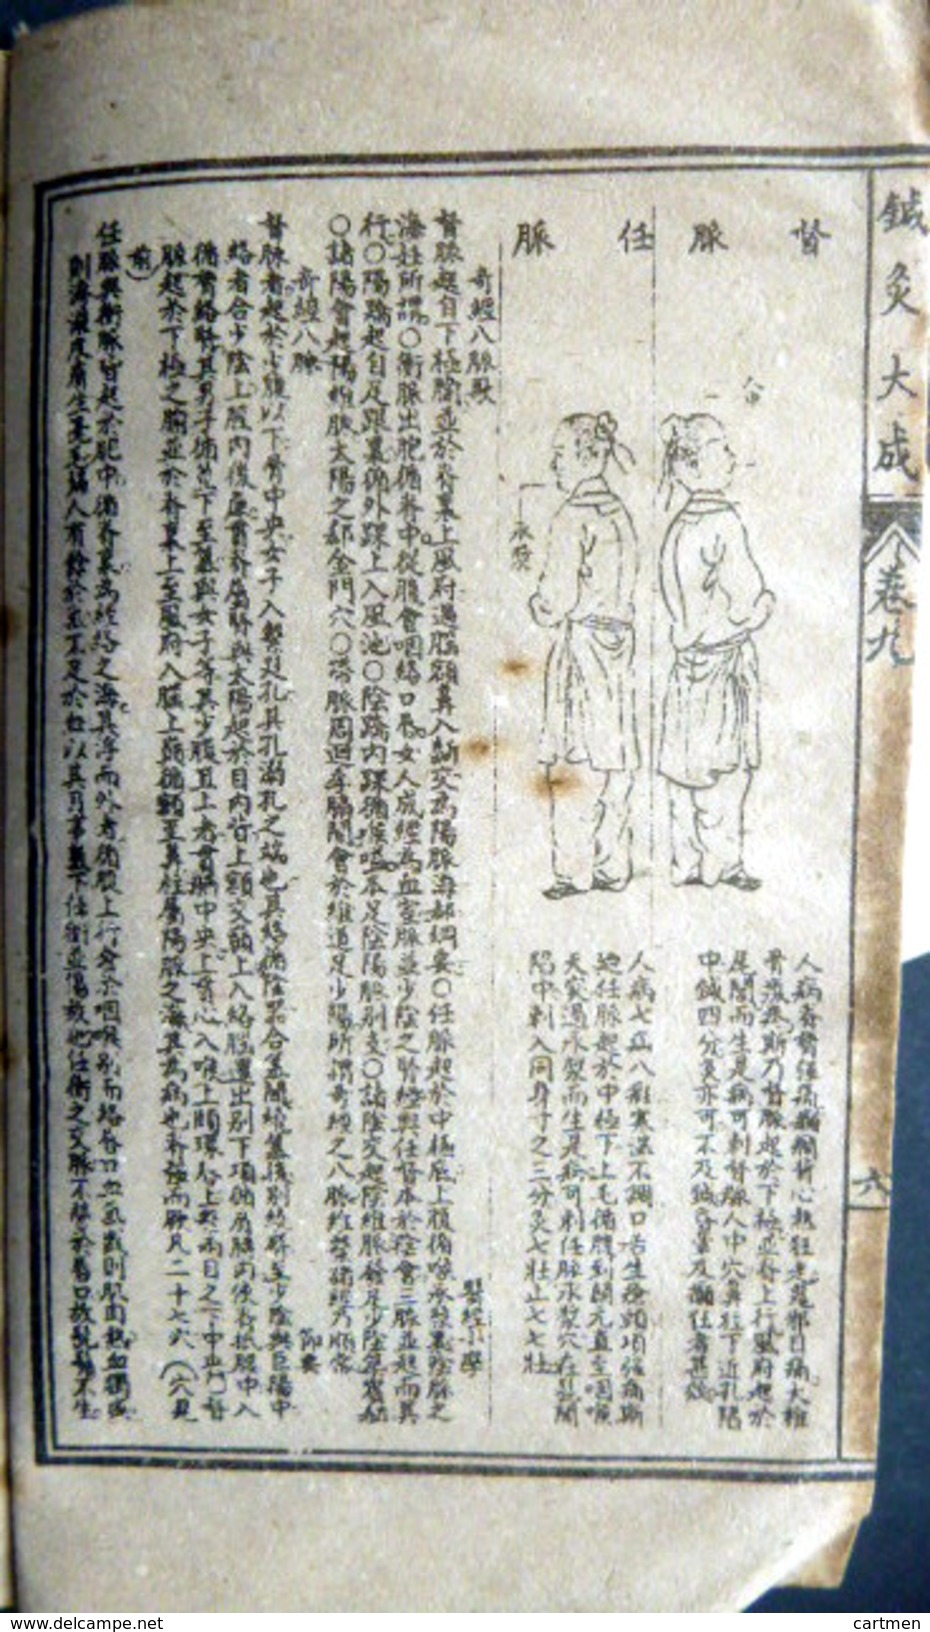 鍼灸大成
卷九
六
督脈
人中
人病脊膂強痛癲癇背心熱狂走鬼邪目痛大椎
骨酸疼斯乃督脈起於下極並脊上行風府起於
尾閭而生是病可刺督脈人中穴鼻柱下近孔陷
中鍼四分灸亦可不及鍼昏暈及癲狂者甚效
任脈
承漿
人病七疝八瘕寒溫不調口舌生瘡頭項強痛斯
乃任脈起於中極下上毛循腹到關元直至咽喉
天突過承漿而生是病可刺任脈承漿穴在
陷中刺入同身寸之三分灸七壯止七七壯
奇經八脈歌
醫經小學
督脈起自下極腧並於脊裏上風府過腦額鼻入齗交為陽脈海都綱要〇任脈起於中極底上腹循喉承漿裏陰脈之
海妊所謂〇衝脈出胞循脊中從腹會咽絡口唇女人成經為血室脈並少陰之腎經與任督本於陰會三脈並起而異
行〇陽蹻起自足跟裏循外踝上入風池〇陰蹻內踝循喉嗌本足陰陽脈別支〇諸陰交起陰維脈發足少陰築賓郄
〇諸陽會起陽維脈太陽之郄金門穴〇帶脈周迴季脇間會於維道足少陽所謂奇經之八脈維繫諸經乃順常
奇經八脈
節要
督脈者起於少腹以下骨中央女子入繫廷孔其孔溺孔之端也其絡循陰器合篡間繞篡後別繞臀至少陰與巨陽中
絡者合少陰上股內後廉貫脊屬腎與太陽起於目內眥上額交巔上入絡腦還出別下項循肩膊內俠脊抵腰中入
循膂絡腎其男子循莖下至篡與女子等其少腹直上者貫臍中央上貫心入喉上頤環唇上繫兩目之下中央督
脈起於下極之腧並於脊裏上至風府入腦上巔循額至鼻柱屬陽脈之海其為病也脊強而厥凡二十七穴（穴見
前）
任脈與衝脈皆起於胞中循脊裏為經絡之海其浮而外者循腹上行會於咽喉別而絡唇口血氣盛則肌肉熱血獨盛
則滲灌皮膚生毫毛婦人有餘於氣不足於血以其月事數下任衝並傷故也任衝之交脈不榮於唇口故髭鬚不生
www.delcampe.net
cartmen